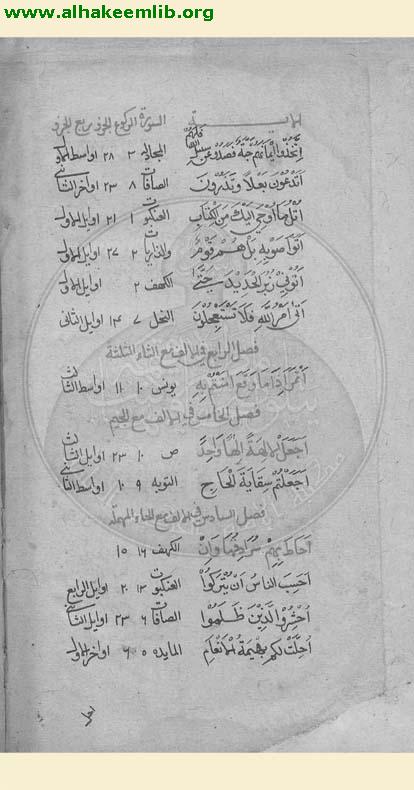 www.alhakeemlib.org
الايــة السورة الركوع الجزو ربع الجزو
اتخذوا ايمانهم جنة فصدوا عن سبيل الله فلهم المجادلة ٣ ٢٨ اواسط الاول
اتدعون بعلا وتذرون الصافات ٨ ٢٣ اواخر الثاني
اتل ما اوحي اليك من الكتاب العنكبوت ١ ٢١ اوايل الاول
اتواصوا به بل هم قوم والذاريات ٢ ٢٧ اوايل الاول
اتوني زبر الحديد حتى الكهف ٢ اوايل الاول
اتى امر الله فلا تستعجلون النحل ٧ ١٤ اوايل الثاني
فصل الرابع في الالف مع الثاء المثلثة
اثم اذا ما وقع امنتم به يونس ١٠ ١١ اواسط الثالث
فصل الخامس في الالف مع الجيم
اجعل الالهة الها واحدا ص ١٠ ٢٣ اوايل الثالث
اجعلتم سقاية الحاج التوبه ٩ ١٠ اواسط الثاني
فصل السادس في الالف مع الحاء المهملة
احاط بهم سرادقها وان الكهف ١٦ ١٥
احسب الناس ان يتركوا العنكبوت ١٣ ٢٠ اوايل الرابع
احشروا الذين ظلموا الصافات ٦ ٢٣ اوايل الثاني
احلت لكم بهيمة الانعام المايده ٥ ٦ اواخر الاول